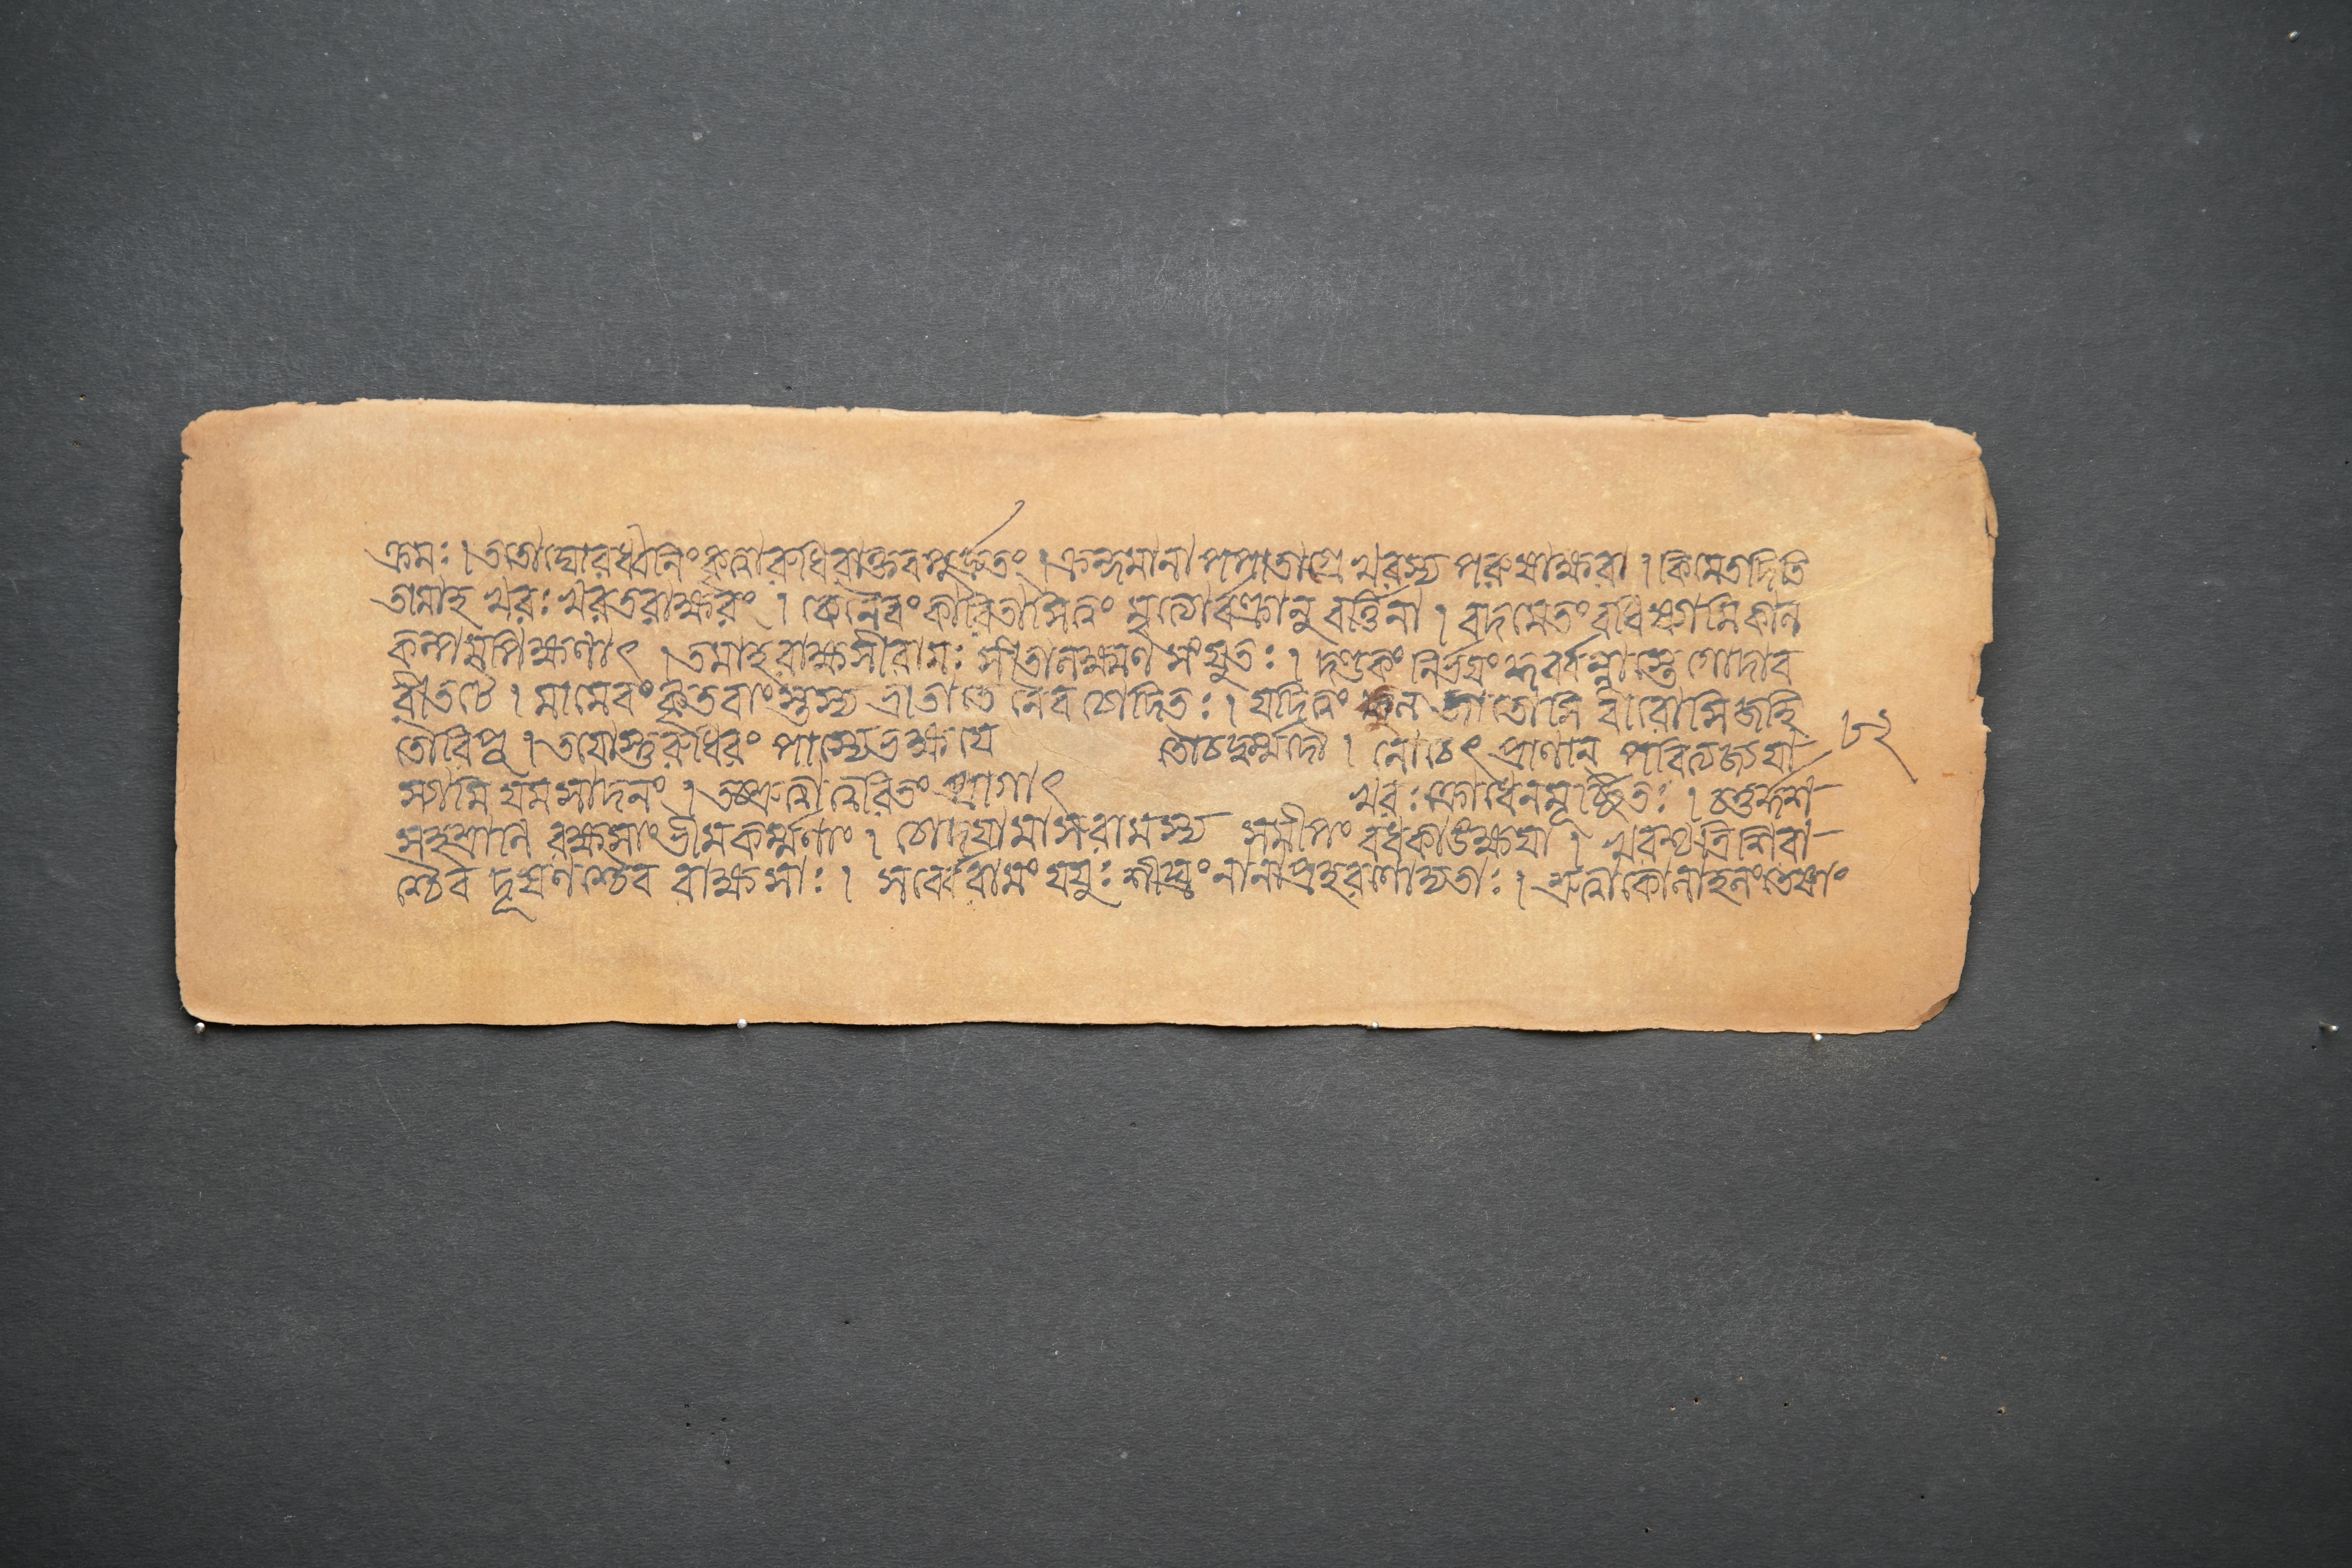 ক্রমঃ। ততো ঘোরধ্বনিং কৃত্বা রুধিরাক্তবপুর্দ্রুতং। ক্রন্দমানা পপাতাগ্রে খরস্য পরুষাক্ষরা। কিমেতদিতি
তামাহ খরঃ খরতরাক্ষরং। কেনৈবং কারিতাসি ত্বং মৃত্যোর্বক্ত্রানুবর্ত্তিনা। বদ মে তং বধিষ্যামি কাল
কল্পমপি ক্ষণাৎ। তমাহ রাক্ষসী রামঃ সীতালক্ষ্মণসংযুতঃ। দণ্ডকং নির্ভয়ং কুর্ব্বন্নাস্তে গোদাব
রীতটে। মামেবং কৃতবাংস্তস্য ভ্রাতা তেনৈব চোদিতঃ। যদি ত্বং কুলজাতোসি বীরোসি জহি
তৌ রিপূ। তয়োস্তু রুধিরং পাস্যে ভক্ষয়ে তৌ চ দুর্ম্মদৌ। নো চেৎ প্রাণান্ পরিত্যজ্য যা
স্যামি যমসাদনং। তচ্ছ্রুত্বা ত্বরিতং প্রাগাৎ খরঃ ক্রোধেন মূর্চ্ছিতঃ। চতুর্দ্দশ
সহস্রাণি রক্ষসাং ভীমকর্ম্মণাং। চোদয়ামাস রামস্য সমীপং বধকাঙক্ষয়া। খরশ্চ ত্রিশিরা
শ্চৈব দূষণশ্চৈব রাক্ষসাঃ। সর্ব্বে রামং যযুঃ শীঘ্রং নানাপ্রহরণোদ্যতাঃ। শ্রুত্বা কোলাহলং তেষাং
৮২